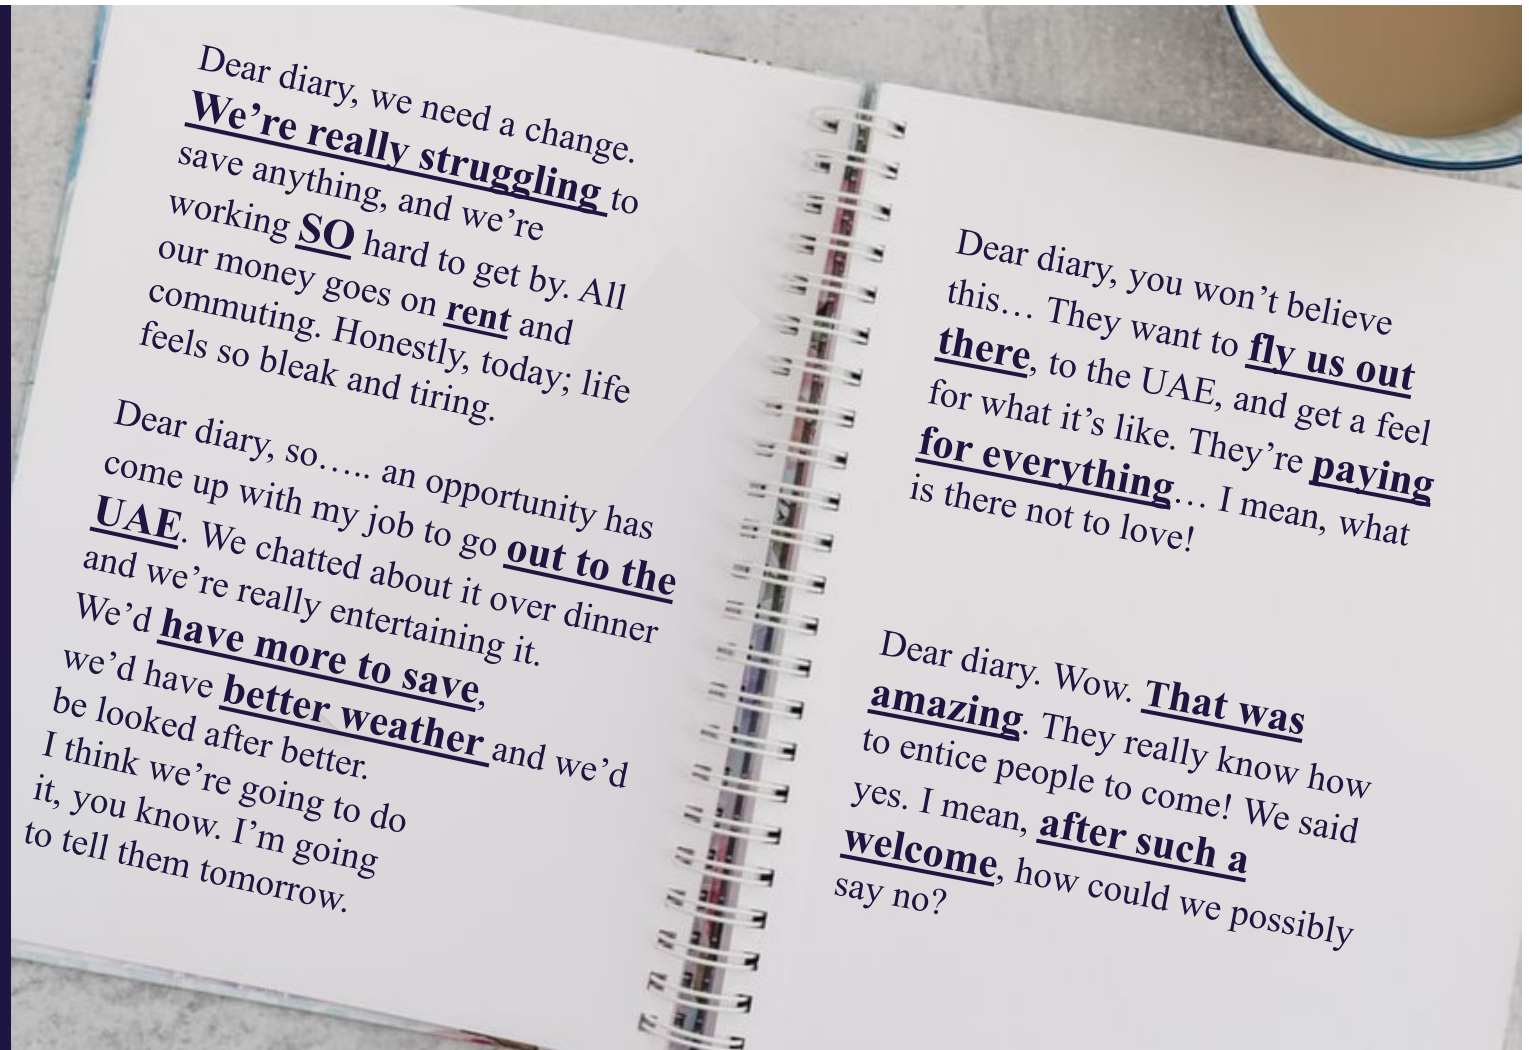 Dear diary, we need a change.
We’re really struggling to
save anything, and we’re
working SO hard to get by. All
our money goes on rent and
commuting. Honestly, today; life
feels so bleak and tiring.
Dear diary, so….. an opportunity has
come up with my job to go out to the
UAE. We chatted about it over dinner
and we’re really entertaining it.
We’d have more to save,
we’d have better weather and we’d
be looked after better.
I think we’re going to do
it, you know. I’m going
to tell them tomorrow.
Dear diary, you won’t believe
this… They want to fly us out
there, to the UAE, and get a feel
for what it’s like. They’re paying
for everything… I mean, what
is there not to love!
Dear diary. Wow. That was
amazing. They really know how
to entice people to come! We said
yes. I mean, after such a
welcome, how could we possibly
say no?